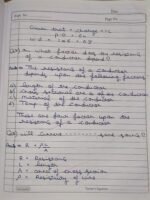 Date
Page No.
Given that = charge = 1C
p.d = 6v
w.d = 1 × 6 = 6J
Q. What factor does the resistance
of a conductor depend?
Ans The resistance of a conductor
depends upon the following factors
a) Length of the conductor
b) Cross sectional area of the conductor
c) Material of the conductor
d) Temp of the conductor
These are four factor upon the
resistance of conductor.
Q. Will current
Ans R =
R = Resistance
L = length
A = area of cross section
= Resistivity of wire
Teacher's Signature